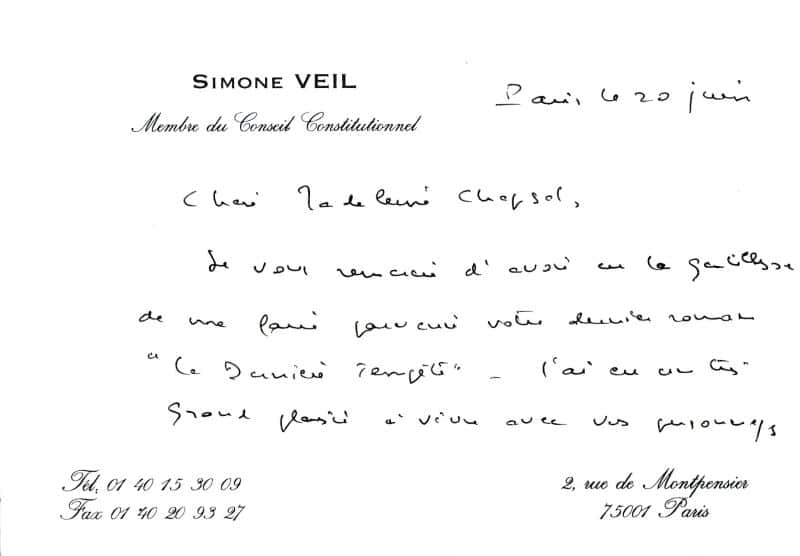 SIMONE VEIL
Membre du Conseil Constitutionnel
Paris, le 20 juin
Chère Madeleine Chapsal,
Je vous remercie d'avoir eu la gentillesse
de me faire parvenir votre dernier roman
"La Dernière Tempête" - J'ai eu un très
grand plaisir à vivre avec vos personnages
Tél. 01 40 15 30 09
Fax 01 40 20 93 27
2, rue de Montpensier
75001 Paris